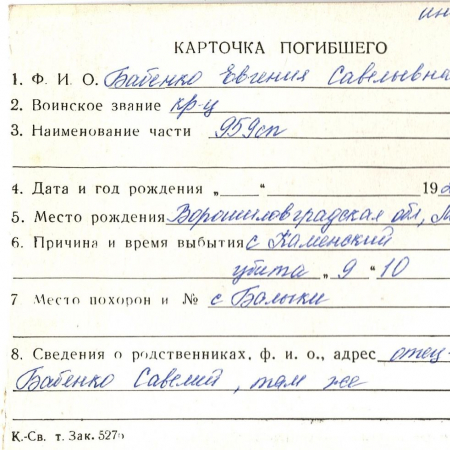 ин
КАРТОЧКА ПОГИБШЕГО
1. Ф. И. О. Бабенко Евгения Савельевна
2. Воинское звание кр-ц
3. Наименование части 959сп
4. Дата и год рождения „ “ 192
5. Место рождения Ворошиловградская обл,
6. Причина и время выбытия с Каменский
убита „ 9 “ 10
7 Место похорон и № с Балыки
8. Сведения о родственниках, ф. и. о., адрес отец-
Бабенко Савелий, там же
К.-Св. т. Зак. 527